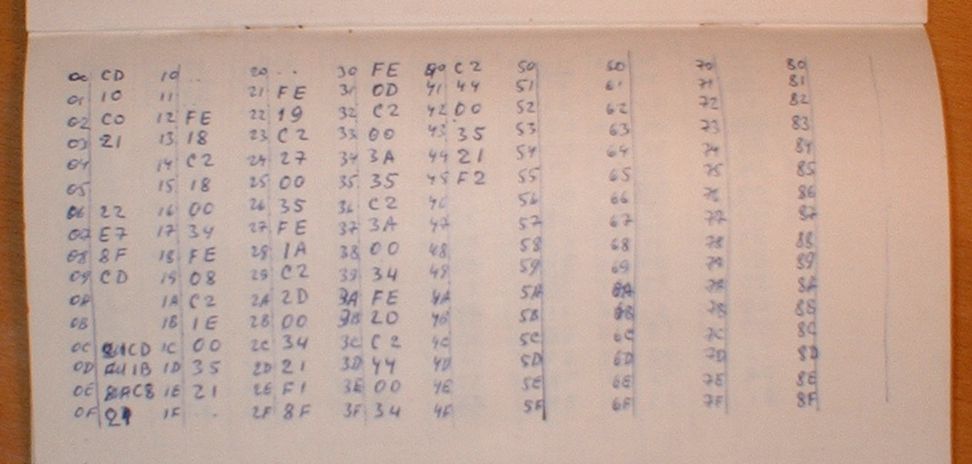 00 CD 10 .. 20 .. 30 FE 40 C2 50 60 70 80
01 10 11 21 FE 31 0D 41 44 51 61 71 81
02 C0 12 FE 22 19 32 C2 42 00 52 62 72 82
03 21 13 18 23 C2 33 00 43 35 53 63 73 83
04 14 C2 24 27 34 3A 44 21 54 64 74 84
05 15 18 25 00 35 35 45 F2 55 65 75 85
06 22 16 00 26 35 36 C2 46 56 66 76 86
07 E7 17 34 27 FE 37 3A 47 57 67 77 87
08 8F 18 FE 28 1A 38 00 48 58 68 78 88
09 CD 19 08 29 C2 39 34 49 59 69 79 89
0A 1A C2 2A 2D 3A FE 4A 5A 6A 7A 8A
0B 1B 1E 2B 00 3B 20 4B 5B 6B 7B 8B
0C CD 1C 00 2C 34 3C C2 4C 5C 6C 7C 8C
0D 1B 1D 35 2D 21 3D 44 4D 5D 6D 7D 8D
0E C8 1E 21 2E F1 3E 00 4E 5E 6E 7E 8E
0F 21 1F . 2F 8F 3F 34 4F 5F 6F 7F 8F